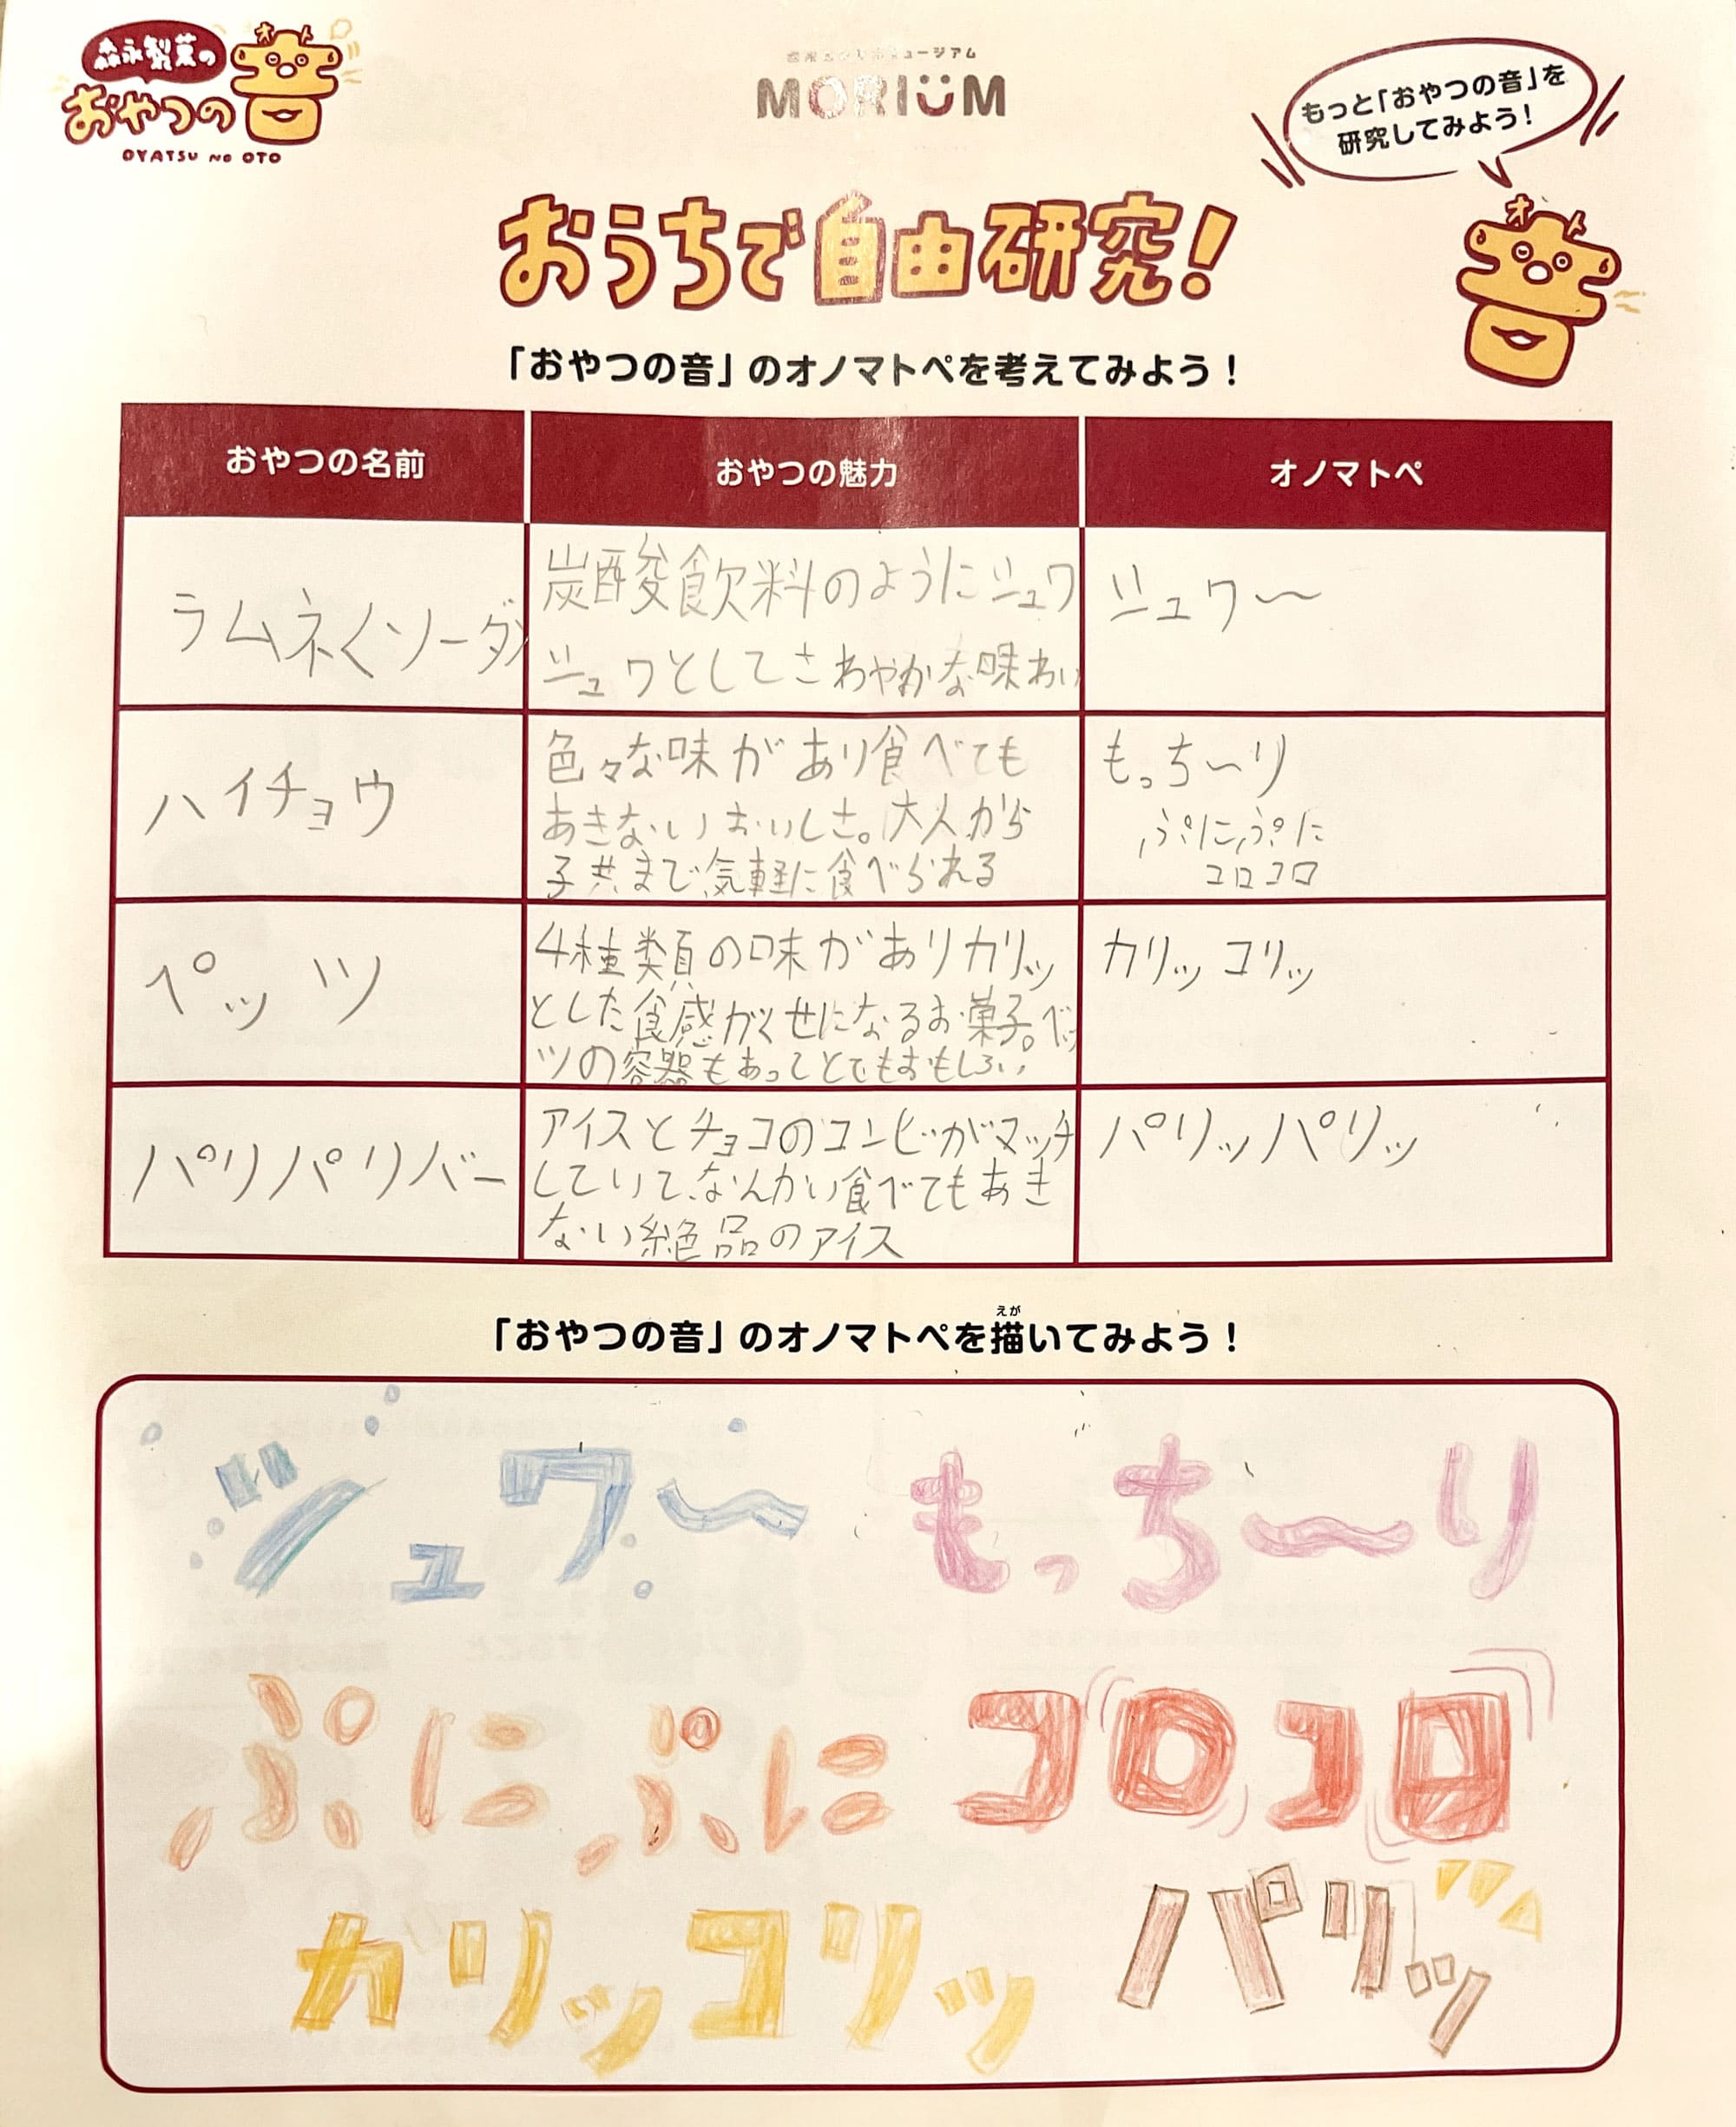 森永製菓の
おやつの
オト
音
OYATSU NO OTO
MORIUM
もっと「おやつの音」を
研究してみよう！
オト
音
おうちで自由研究！
「おやつの音」のオノマトペを考えてみよう！
おやつの名前
おやつの魅力
オノマトペ
ラムネくソーダ
炭酸飲料のようにジュワ
ジュワとしてさわやかな味わい
ジュワ〜
ハイチョウ
色々な味があり食べても
あきないおいしさ。大人から
子共まで気軽に食べられる
もっち〜り
ぷにぷに
コロコロ
ペッツ
4種類の味がありカリッ
とした食感がくせになるお菓子。ペッ
ツの容器もあってとてもおもしろい。
カリッコリッ
パリパリバー
アイスとチョコのコンビがマッチ
していて、なんかい食べてもあき
ない絶品のアイス
パリッパリッ
「おやつの音」のオノマトペを描いてみよう！
えが
ジュワ〜
もっち〜り
ぷにぷに
コロコロ
カリッコリッ
パリッ